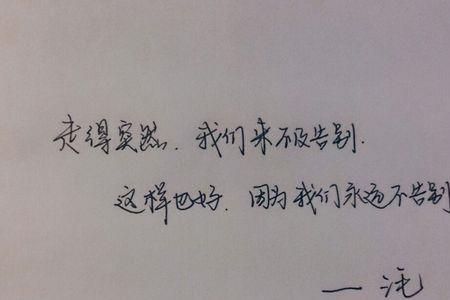 走得突然.我们来不及告别.
这样也好.因为我们永远不告别